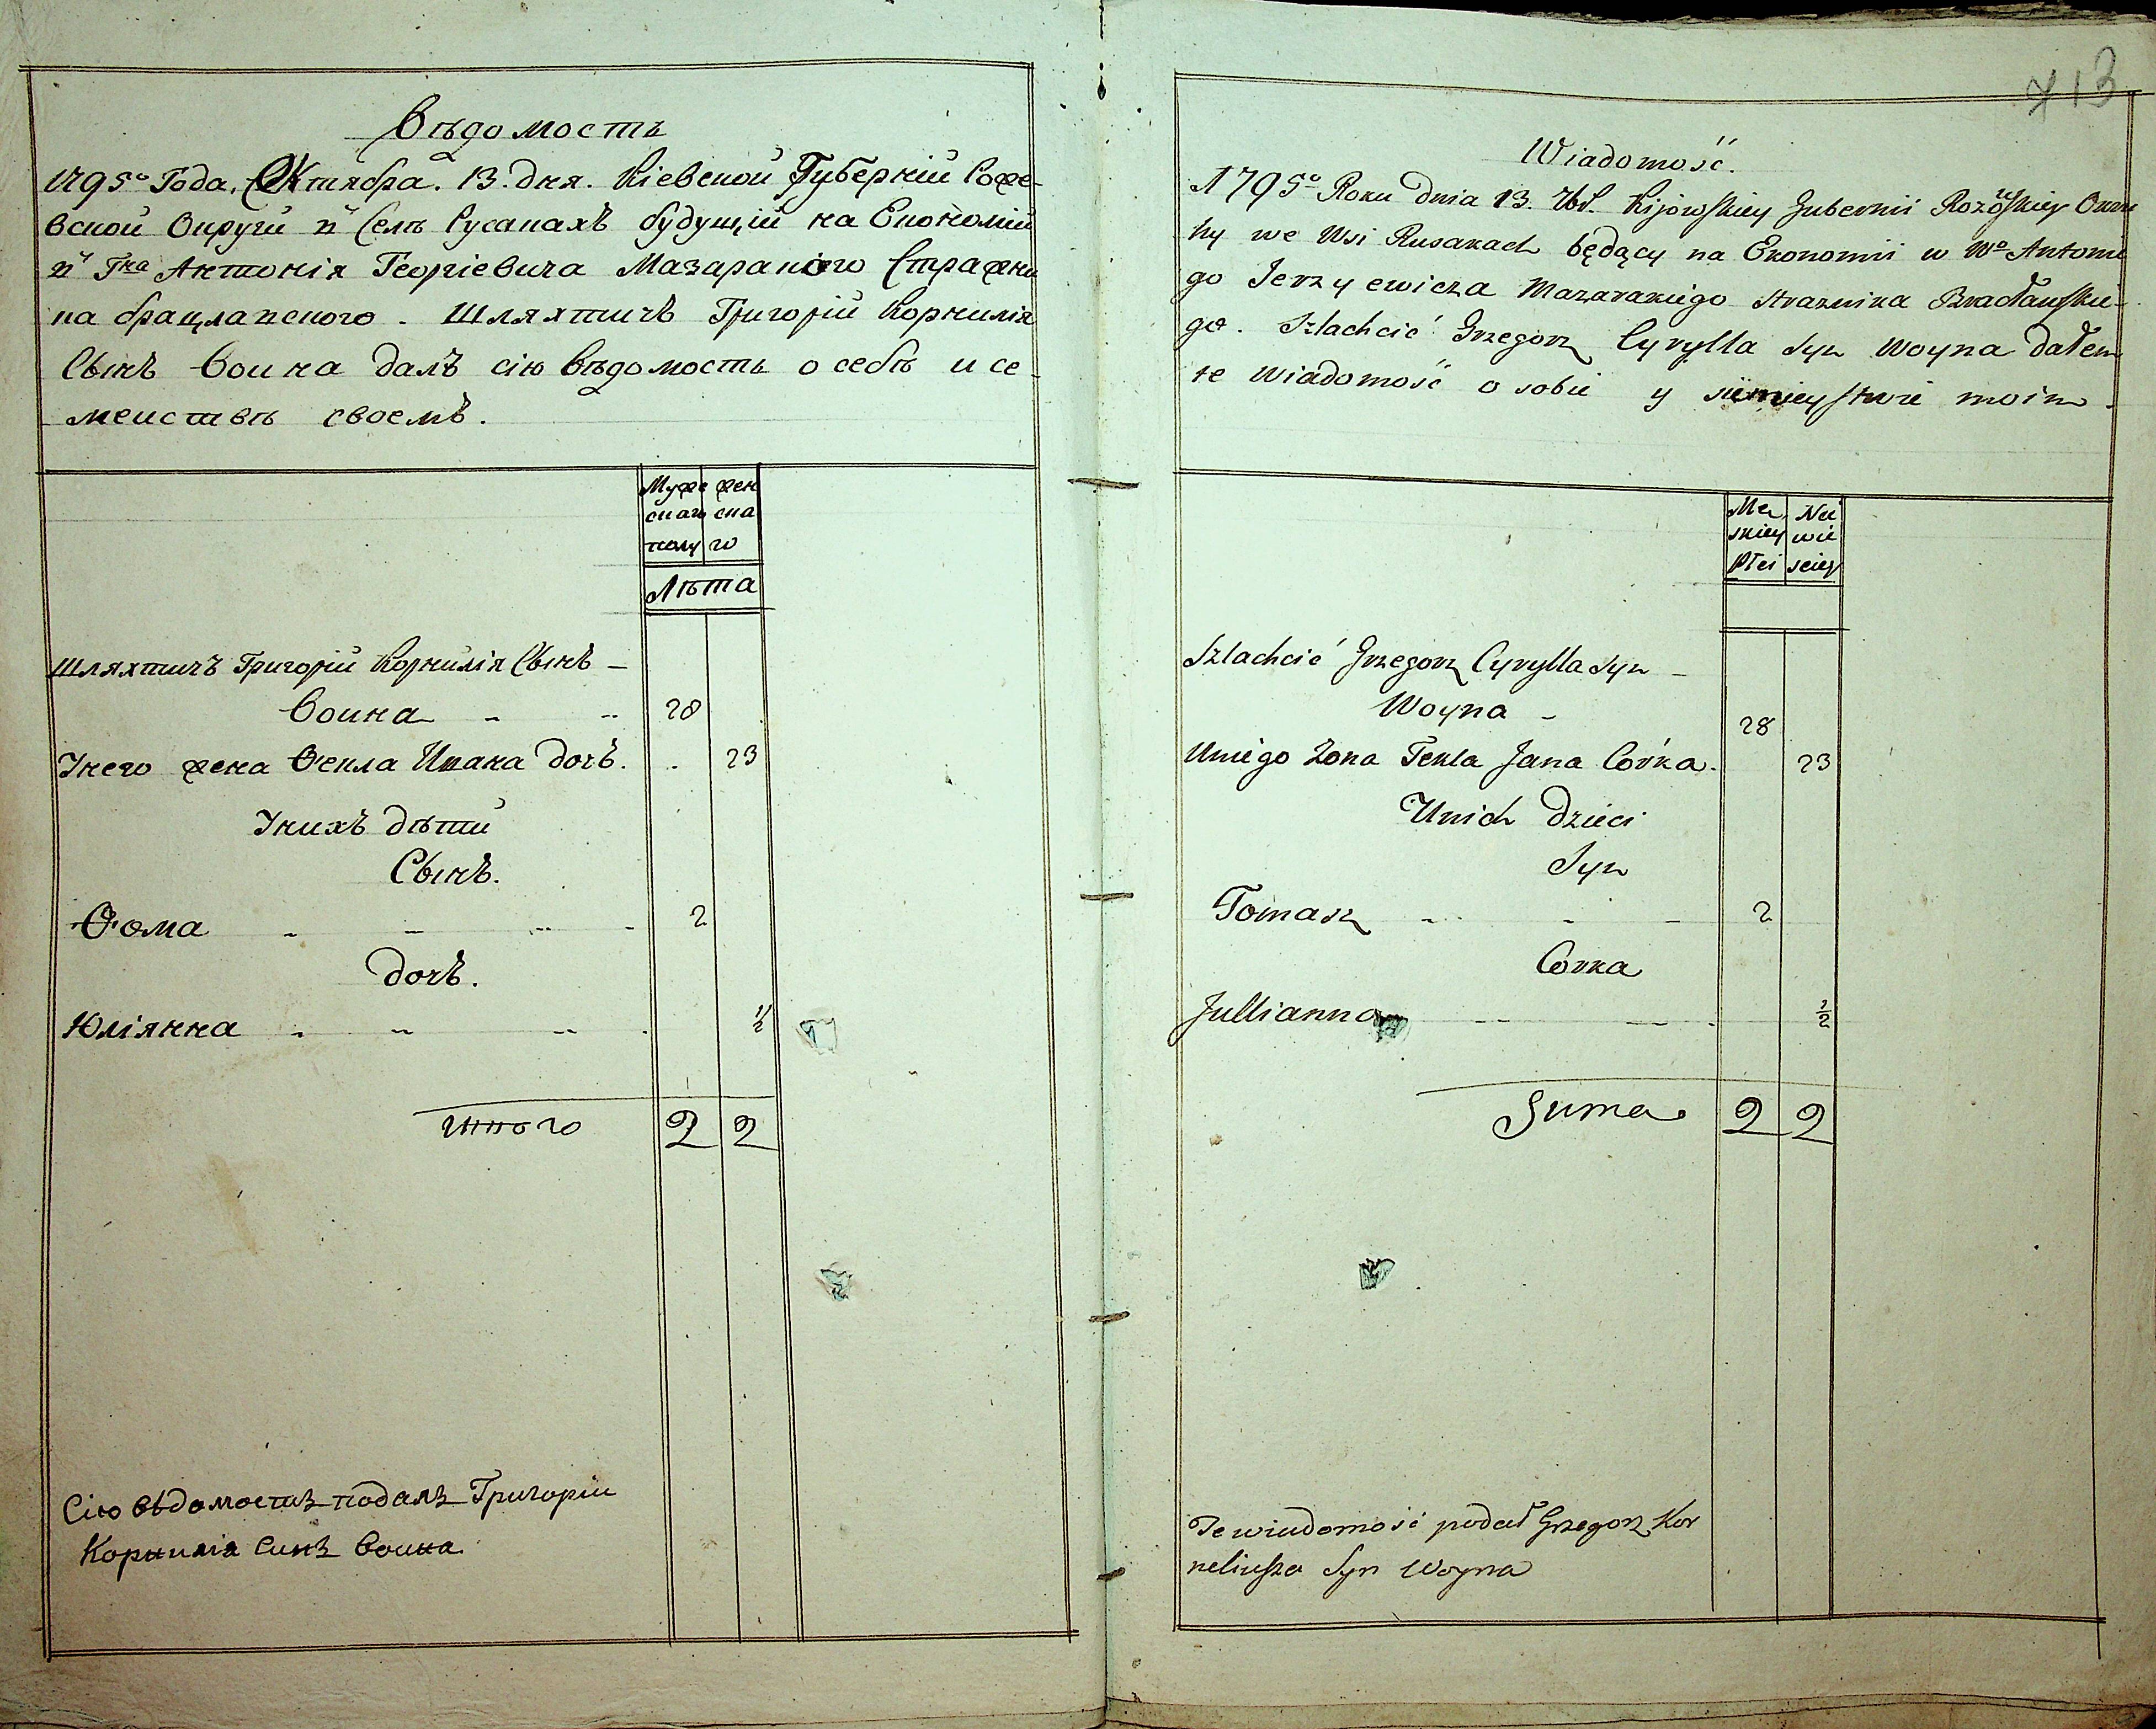 Вѣдомость
1795º Года, Октября. 13. дня. Кіевской Губерніи Роже-
вской Округи в Селѣ Русанахъ будущій на Економіи
в Гна Антонія Георгіевича Мазаракіего Стражни
ка брацлавского. Шляхтичъ Григорій Корнилія
Сынъ Воина далъ сію вѣдомость о себѣ и се-
меиствѣ своемъ.
Муже жен
скаго ска
полу го
Лѣта
Шляхтичъ Григорій Корнилія Сынъ –
Воина 28
Унего жена Ѳекла Ивана дочъ. 23
Унихъ дѣти
Сынъ.
Ѳома 2
дочъ.
Юліянна ½
итого 2 2
Сію вѣдомостъ подалъ Григорій
Корнилія Синъ Воина
713
Wiadomość.
1795º Roku Dnia 13. 8br. Kijowskiey Gubernii Rozowskiey Okru
hy we Wsi Rusakach będący na Ekonomii u Wº Antonie
go Jerzyewicza Mazarakiego Straznika Bracławskie-
go. Szlachcić Grzegorz Cyrylla Syn Woyna dałem
te Wiadomość o sobie y siemieystwie moim.
Mę Nie
skiey wie
Płci sciey
Szlachcić Grzegorz Cyrylla Syn –
Woyna – 28
Uniego Zona Tekla Jana Córka. 23
Unich Dzieci
Syn
Tomasz 2
Córka
Jullianna ½
Suma 2 2
Te wiadomość podał Grzegorz Kor
neliusza Syn Woyna